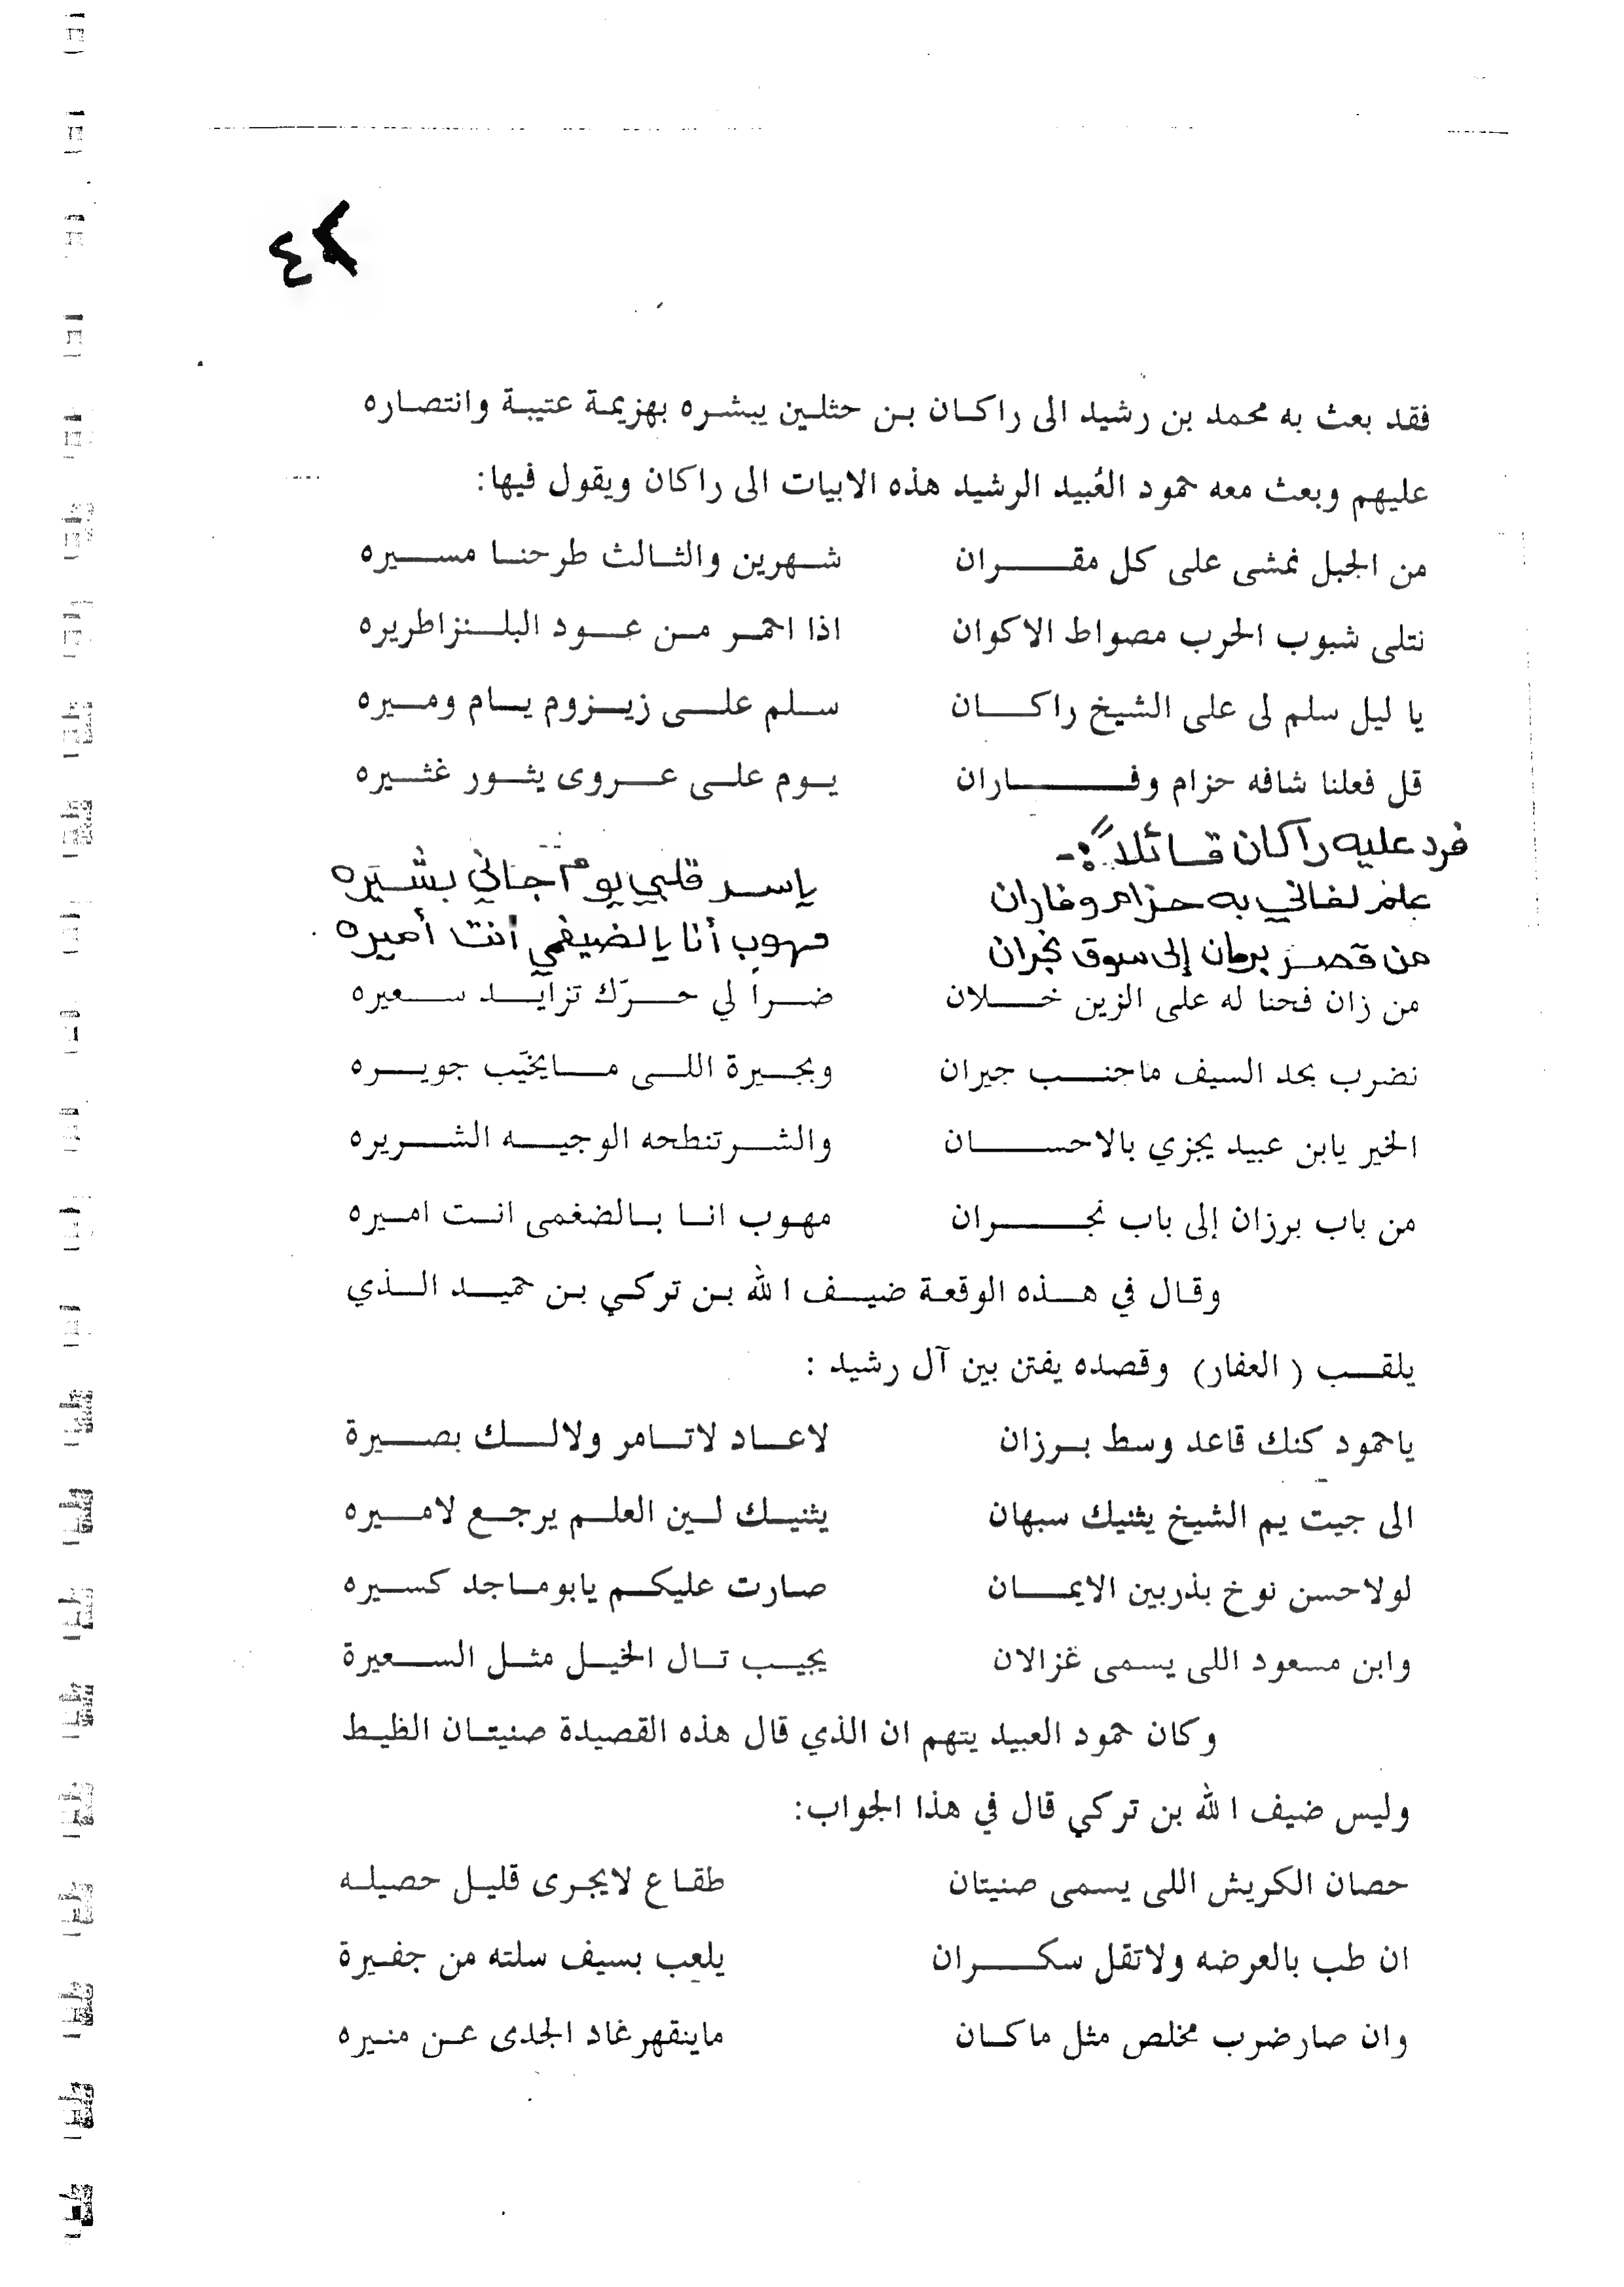 فقد بعث به محمد بن رشيد الى راكان بن حثلين يبشره بهزيمة عتيبة وانتصاره
عليهم وبعث معه حمود العُبيد الرشيد هذه الابيات الى راكان ويقول فيها:
من الجبل نمشى على كل مقران شهرين والثالث طرحنا مسيره
نتلى شبوب الحرب مصواط الاكوان اذا احمر من عود البلنزاطريره
يا ليل سلم لى على الشيخ راكان سلم على زيزوم يام وميره
قل فعلنا شافه حزام وفاران يوم على عروى يثور غثيره
فرد عليه راكان قائلاً:-
علمٍ لفاني به حزام وفاران ياسر قلبي يوم جاني بشيره
من قصر برمان إلى سوق نجران مهوب أنا يالضيغمي أنت أميره
من زان فحنا له على الزين خلان ضراً لي حرّك تزايد سعيره
نضرب بحد السيف ماجنب جيران وبجيرة اللى مايخيَب جويره
الخير يابن عبيد يجزي بالاحسان والشرتنطحه الوجيه الشريره
من باب برزان إلى باب نجران مهوب انا بالضغمى انت اميره
وقال في هذه الوقعة ضيف الله بن تركي بن حميد الذي
يلقب (العفار) وقصده يفتن بين آل رشيد :
ياحمود كنك قاعد وسط برزان لاعاد لاتامر ولالك بصيرة
الى جيت يم الشيخ يثنيك سبهان يثنيك لين العلم يرجع لاميره
لولاحسن نوخ بذربين الايمان صارت عليكم يابوماجد كسيره
وابن مسعود اللى يسمى غزالان يجيب تال الخيل مثل السعيرة
وكان حمود العبيد يتهم ان الذي قال هذه القصيدة صنيتان الظيط
وليس ضيف الله بن تركي قال في هذا الجواب:
حصان الكريش اللى يسمى صنيتان طقاع لايجرى قليل حصيله
ان طب بالعرضه ولاتقل سكران يلعب بسيف سلته من جفيرة
وان صارضرب مخلص مثل ماكان ماينقهرغاد الجدى عن منيره